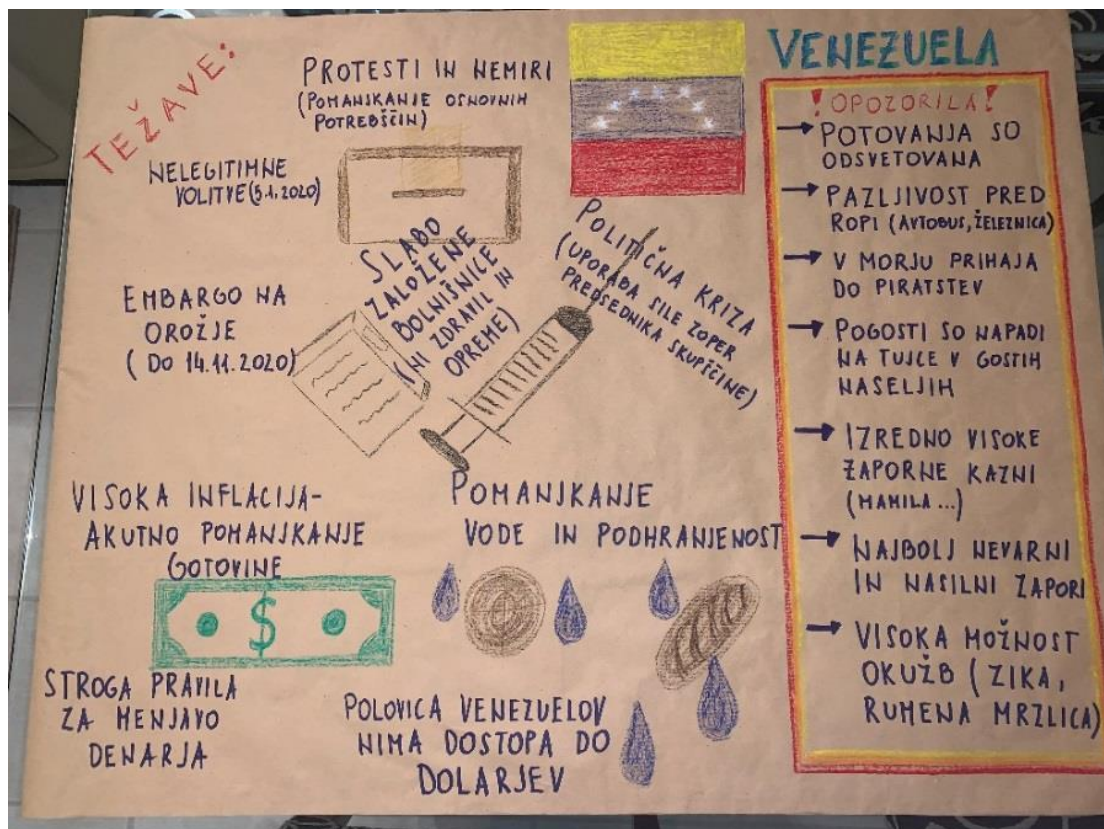 TEŽAVE:
PROTESTI IN NEMIRI
(POMANJKANJE OSNOVNIH
POTREBŠČIN)
NELEGITIMNE
VOLITVE (5.1.2020)
EMBARGO NA
OROŽJE
(DO 14.11.2020)
SLABO
ZALOŽENE
BOLNIŠNICE
(NI ZDRAVIL IN
OPREME)
POLITIČNA KRIZA
(UPORABA SILE ZOPER
PREDSEDNIKA SKUPŠČINE)
VISOKA INFLACIJA-
AKUTNO POMANJKANJE
GOTOVINE
$
STROGA PRAVILA
ZA MENJAVO
DENARJA
POMANJKANJE
VODE IN PODHRANJENOST
POLOVICA VENEZUELOV
NIMA DOSTOPA DO
DOLARJEV
VENEZUELA
!OPOZORILA!
→ POTOVANJA SO
ODSVETOVANA
→ PAZLJIVOST PRED
ROPI (AVTOBUS, ŽELEZNICA)
→ V MORJU PRIHAJA
DO PIRATSTEV
→ POGOSTI SO NAPADI
NA TUJCE V GOSTIH
NASELJIH
→ IZREDNO VISOKE
ZAPORNE KAZNI
(MAMILA...)
→ NAJBOLJ NEVARNI
IN NASILNI ZAPORI
→ VISOKA MOŽNOST
OKUŽB (ZIKA,
RUMENA MRZLICA)